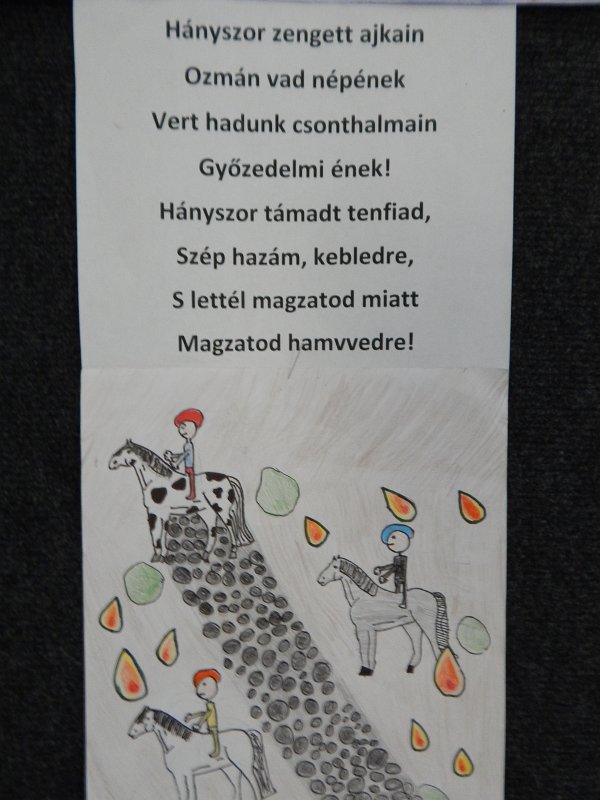 Hányszor zengett ajkain
Ozmán vad népének
Vert hadunk csonthalmain
Győzedelmi ének!
Hányszor támadt tenfiad,
Szép hazám, kebledre,
S lettél magzatod miatt
Magzatod hamvvedre!